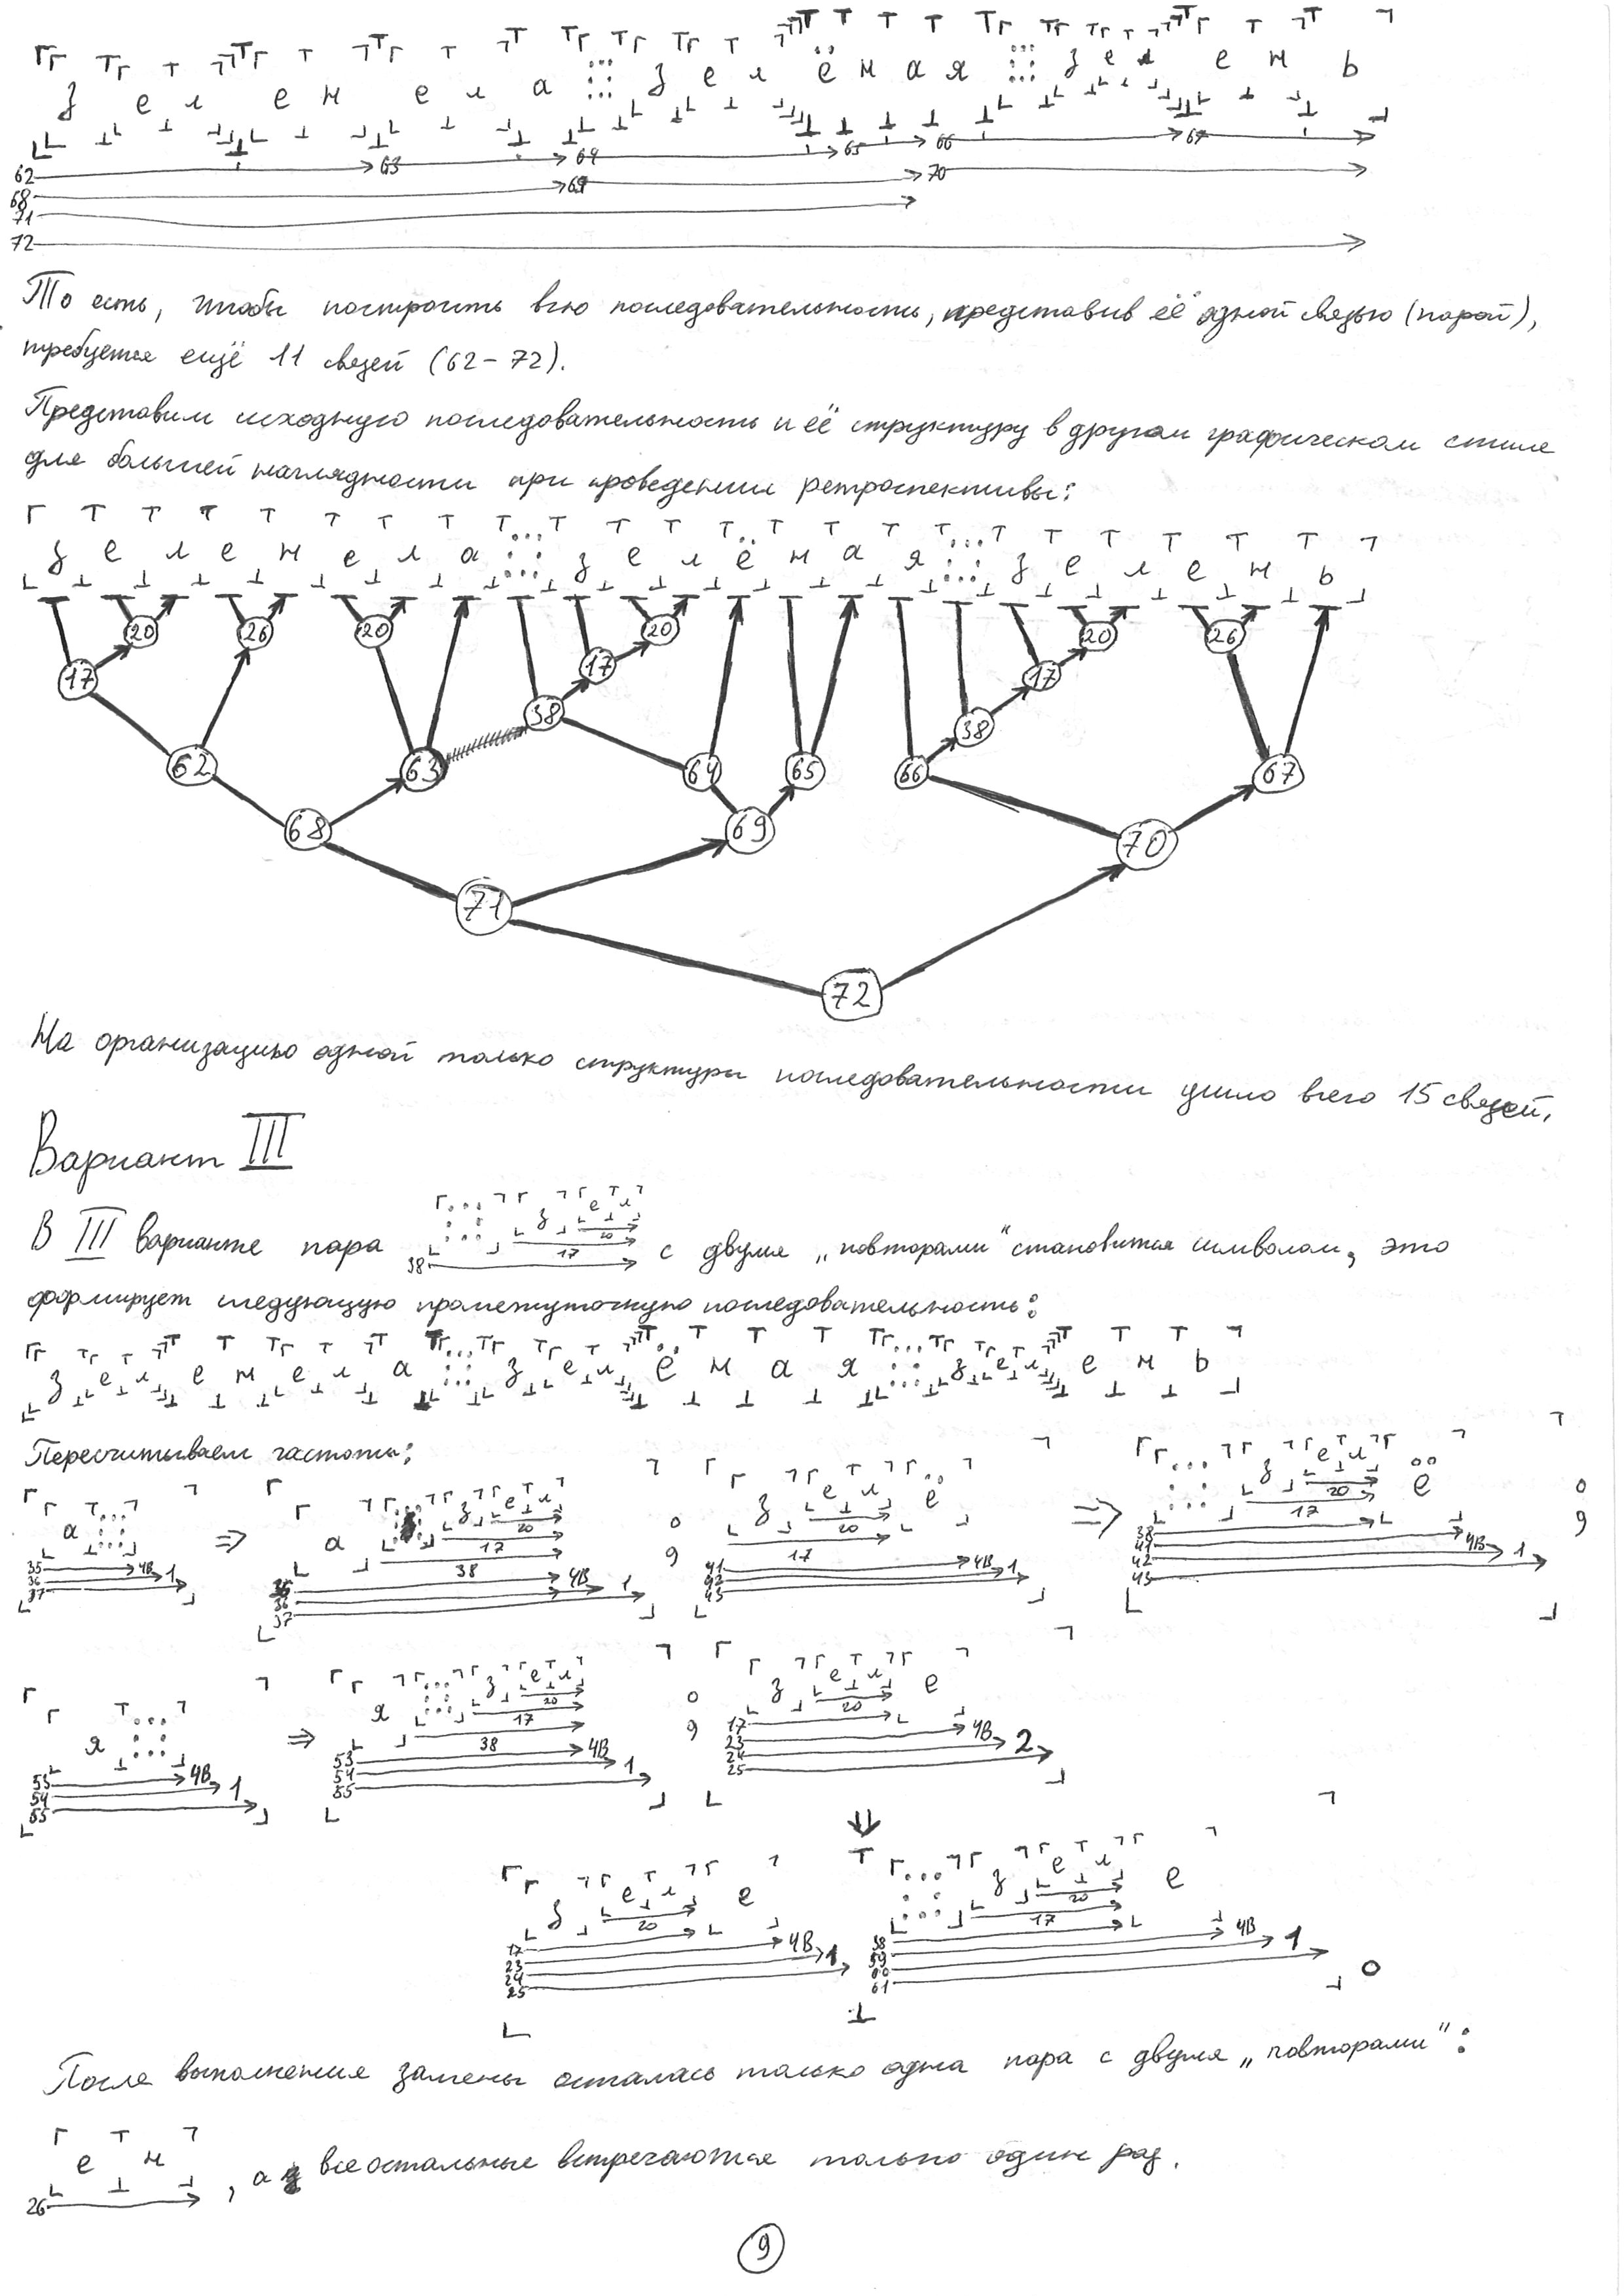 з е л е н е л а з е л ё н а я з е л е н ь
62 63 64 65 66 67
68 69 70
71
72
То есть, чтобы построить всю последовательность, представив её одной связью (парой),
требуется ещё 11 связей (62 – 72).
Представим исходную последовательность и её структуру в другом графическом стиле
для большей наглядности при проведении ретроспективы:
з е л е н е л а з е л ё н а я з е л е н ь
20 26 20 20 20 26
17 17 17
38 38
62 63 64 65 66 67
68 69 70
71
72
На организацию одной только структуры последовательности ушло всего 15 связей.
Вариант III
з е л
20
В III варианте пара 38 17 с двумя „повторами“ становится символом, это
формирует следующую промежуточную последовательность:
з е л е н е л а з е л ё н а я з е л е н ь
Пересчитываем частоты:
а ⇒ а з е л 0 з е л ё ⇒ з е л ё 0
20 9 20 20 9
17 17 17
38
35 ЧВ 35 ЧВ 41 ЧВ 38 ЧВ
36 1 36 1 42 1 41 1
37 37 43 42
43
я ⇒ я з е л 0 з е л е
20 9 20
17 17 ЧВ
38 23 2
53 ЧВ 53 ЧВ 24
54 1 54 1 25
55 55
⇓
з е л е з е л е
20 20
17
17 ЧВ 38 ЧВ
23 1 59 1
24 60 0
25 61
После выполнения замены осталась только одна пара с двумя „повторами“:
е н
26 , а все остальные встречаются только один раз.
9